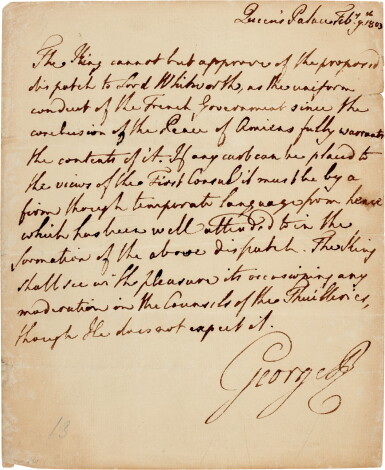 Queen's Palace Feb.y 9th 1803
The King cannot but approve of the proposed
dispatch to Lord Whitworth, as the uniform
conduct of the French Government since the
conclusion of the Peace of Amiens fully warrants
the contents of it. If any curb can be placed to
the views of the First Consul it must be by a
firm though temperate language from hence
which has been well attended to in the
formation of the above dispatch. The King
shall see with pleasure its occasioning any
moderation in the Counsils of the Thuilleries,
though He does not expect it.
George R
13